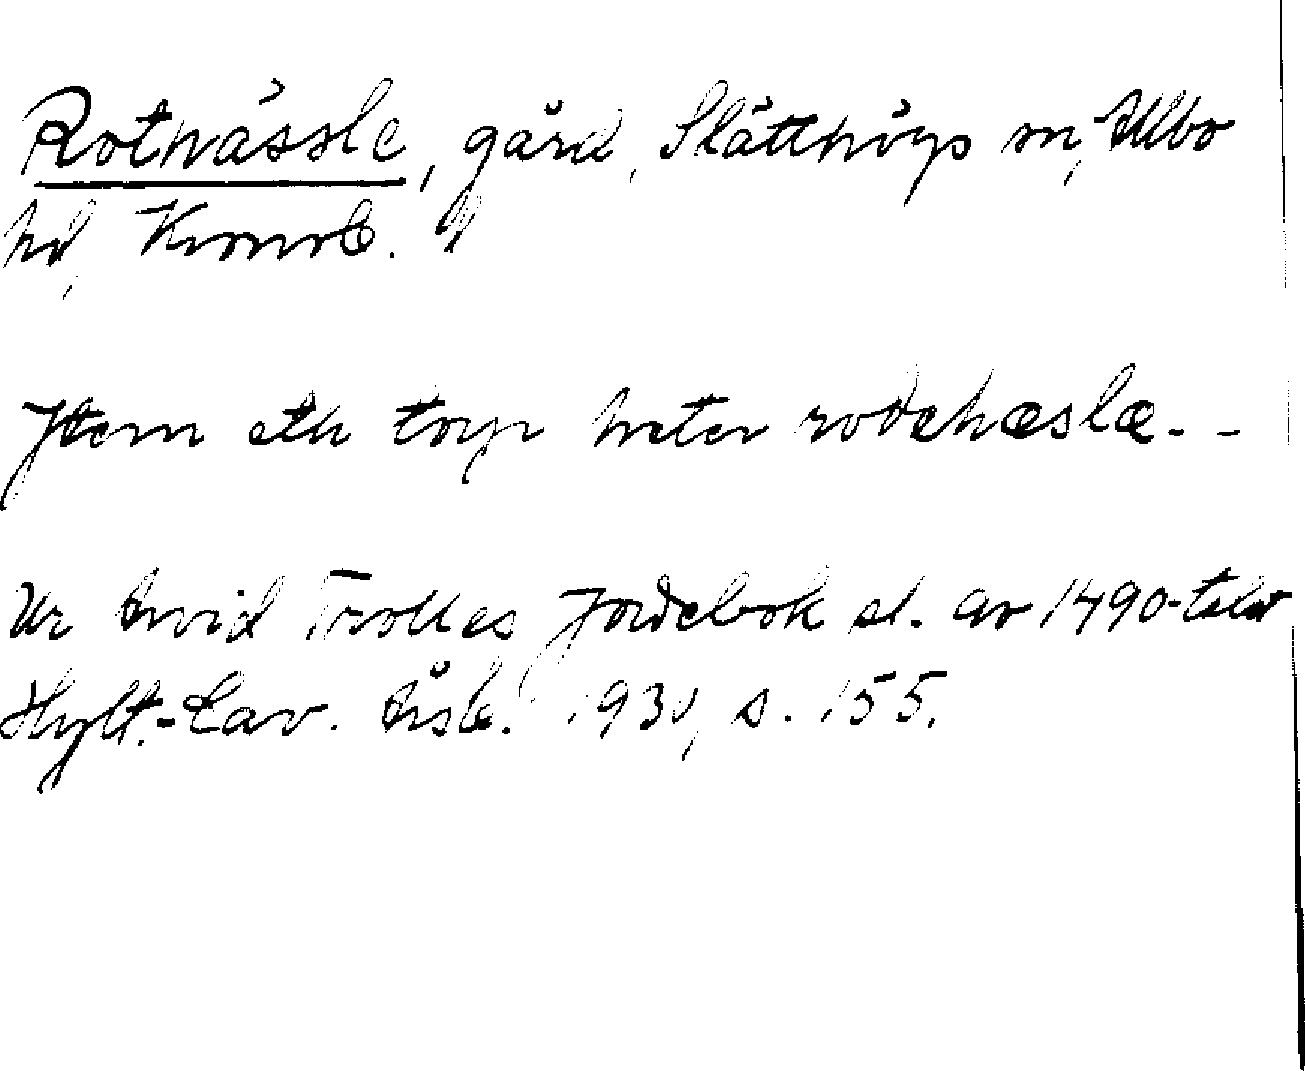 Rothässle, gård, Slätthögs sn, Allbo
hd, Kronob. l
Jtem eth torp heter rodehæslæ--
Ur Arvid Trolles Jordebok sl. av 1490-talet
Hylt.-Cav. Årsb. 1930, s. 155.